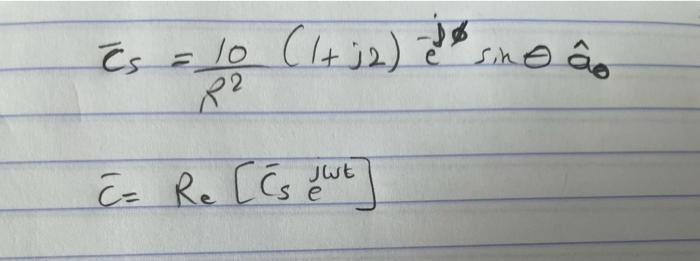 C̄s = 10/R² (1+j2) e^-jϕ sin θ âθ
C̄ = Re [C̄s e^jωt]